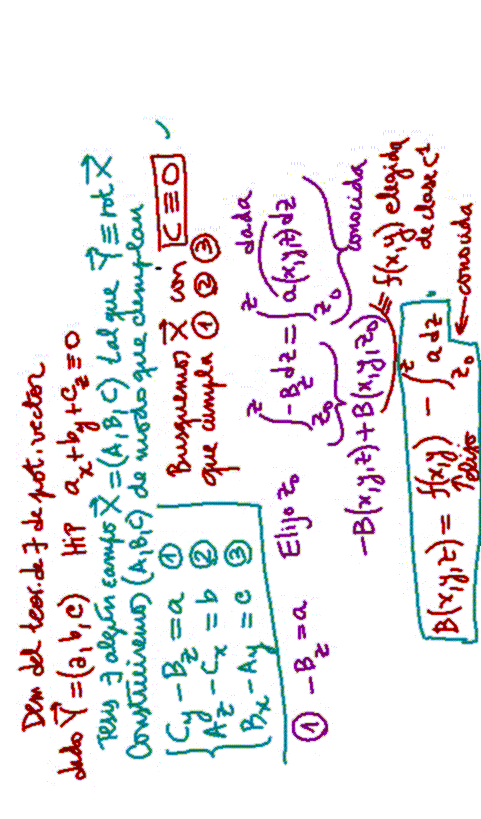 Dem del teor. de ∃ de pot. vector
dado Y⃗ = (a, b, c) HIP a_x + b_y + c_z ≡ 0
Tesis ∃ algún campo X⃗ = (A, B, C) tal que Y⃗ ≡ rot X⃗
Construiremos (A, B, C) de modo que cumplan ✓
C_y − B_z = a ①
A_z − C_x = b ②
B_x − A_y = c ③
Busquemos X⃗ con C ≡ 0
que cumpla ① ② ③
① −B_z = a Elijo z_0 ∫_{z_0}^{z} −B_z dz = ∫_{z_0}^{z} a(x,y,z) dz
dada
conocida
−B(x,y,z) + B(x,y,z_0)
= f(x,y) elegida
de clase C¹
B(x,y,z) = f(x,y) − ∫_{z_0}^{z} a dz
↑ elijo
← conocida